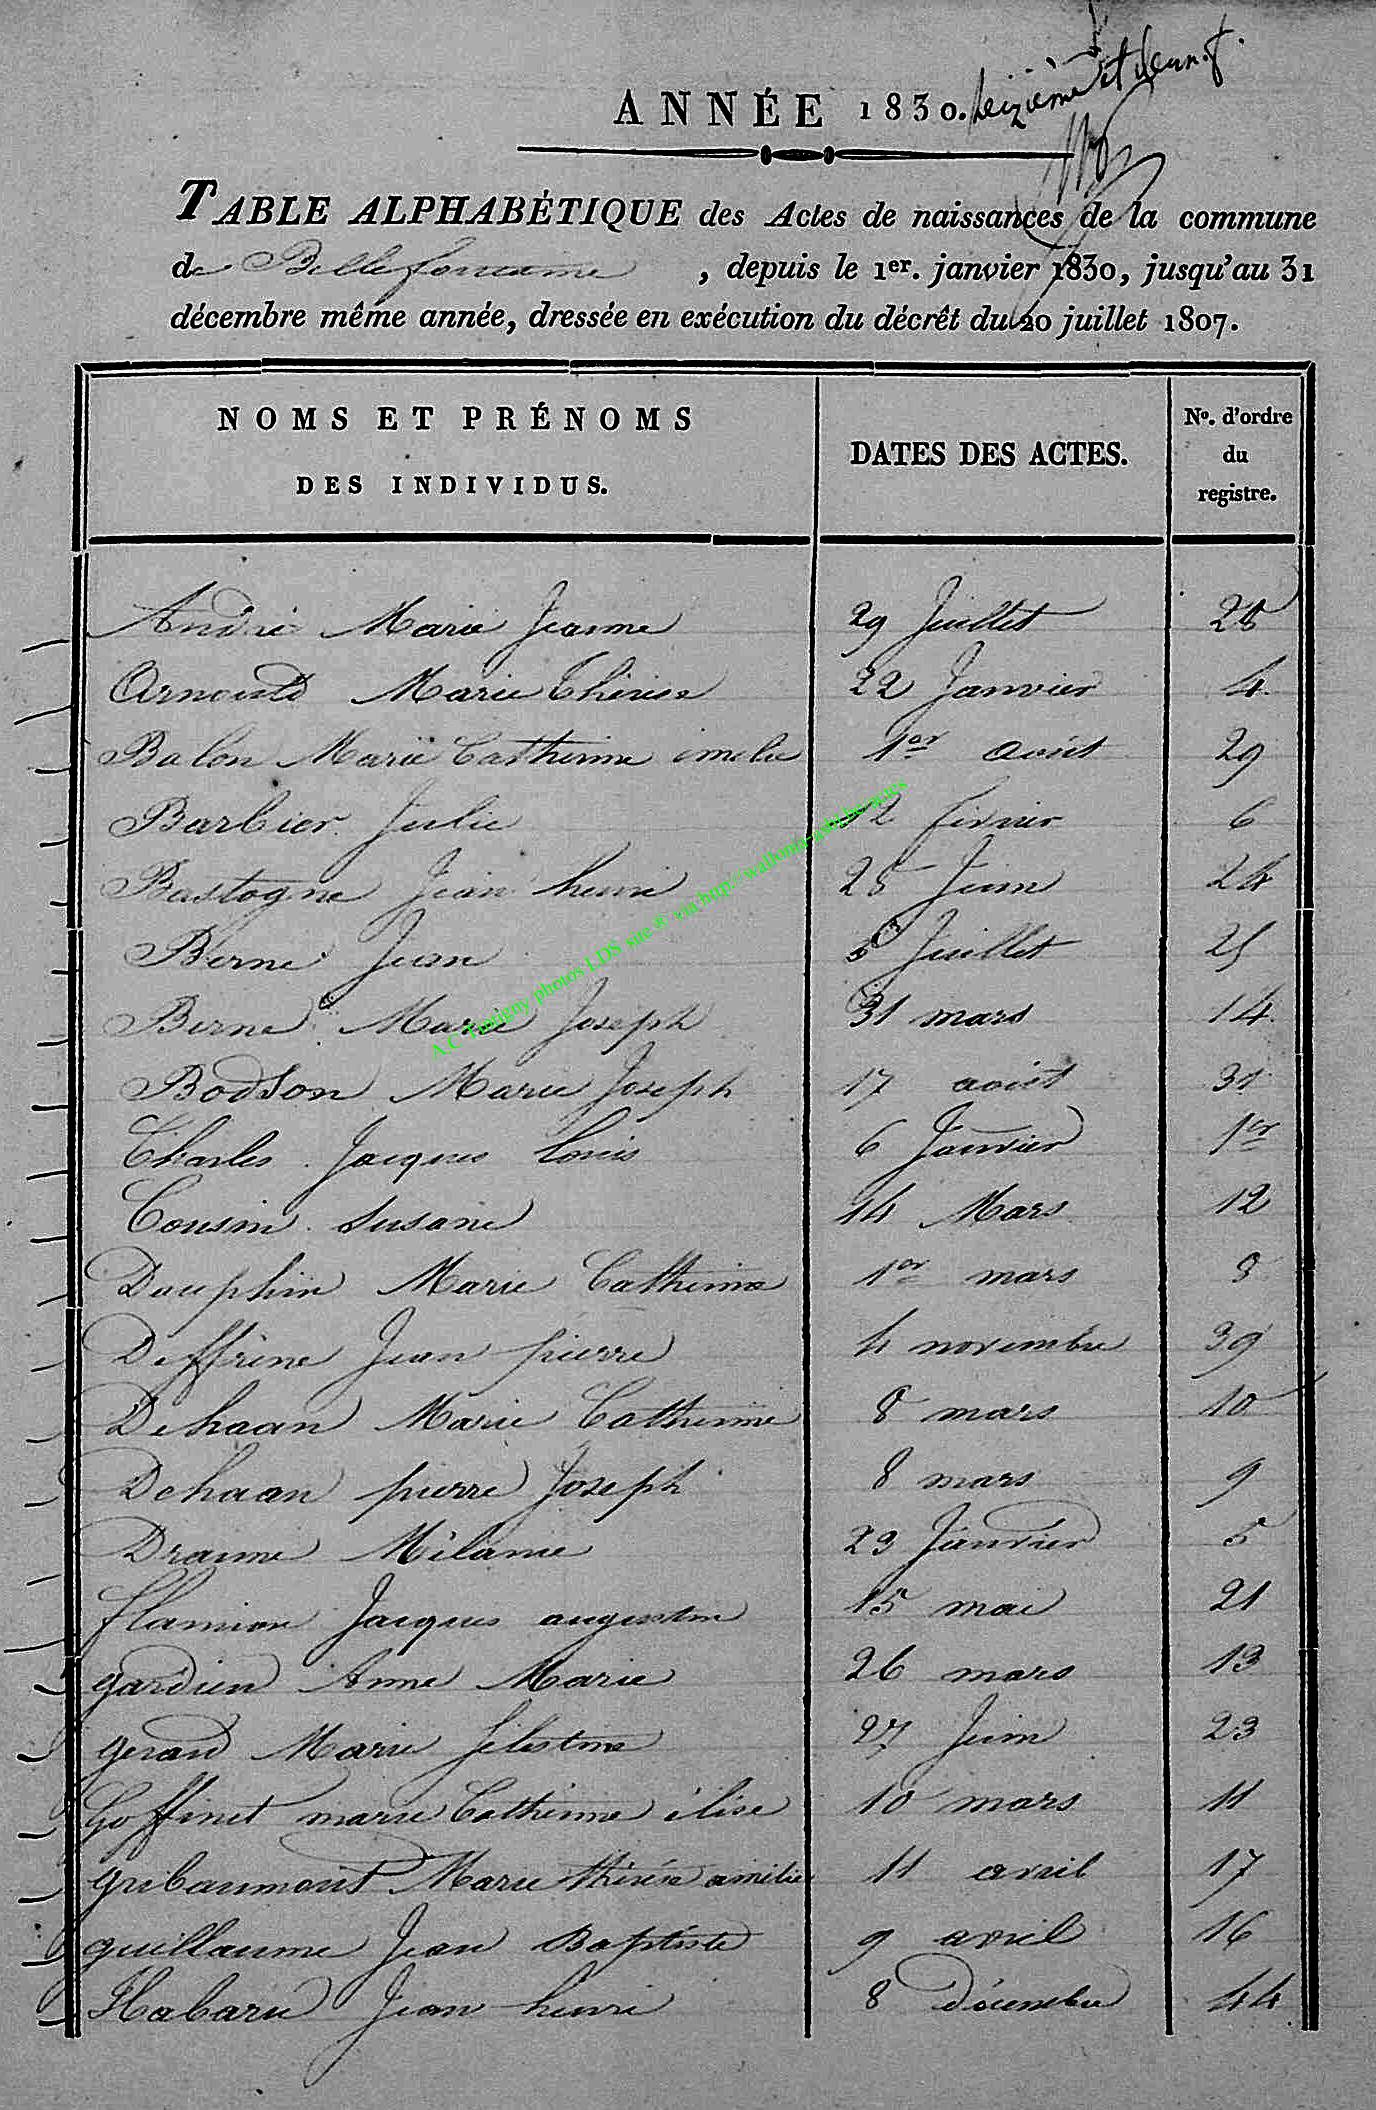 ANNÉE 1830.
TABLE ALPHABÉTIQUE des Actes de naissances de la commune
de Bellefontaine, depuis le 1er. janvier 1830, jusqu'au 31
décembre même année, dressée en exécution du décrêt du 20 juillet 1807.
NOMS ET PRÉNOMS
DES INDIVIDUS.
DATES DES ACTES.
No. d'ordre
du
registre.
André Marie Jeanne 29 Juillet 28
Arnould Marie Thérèse 22 Janvier 4
Balon Marie Catherine 1er août 29
Barbier Julie février 6
Bastogne Jean henri 25 Juin 24
Berne Jean Juillet 25
Berne Marie Joseph 31 mars 14
Bodson Marie Joseph 17 août 31
Charles Jacques Louis 6 Janvier 1er
Cousin Susane 14 Mars 12
Dauphin Marie Catherine 1er mars 8
Deffrène Jean pierre 4 novembre 39
Dehaan Marie Catherine 8 mars 10
Dehaan pierre Joseph 8 mars 9
Draime Mélanie 23 Janvier 5
flamion Jacques augustin 15 mai 21
gardien Anne Marie 26 mars 13
gerard Marie Célestine 27 Juin 23
Goffinet marie Catherine élise 10 mars 11
gribaumont Marie thérèse amélie 11 avril 17
guillaume Jean Baptiste 9 avril 16
Habaru Jean henri 8 décembre 44
A.C Tintigny photos LDS site ® via http://wallonia-asbl.be/actes